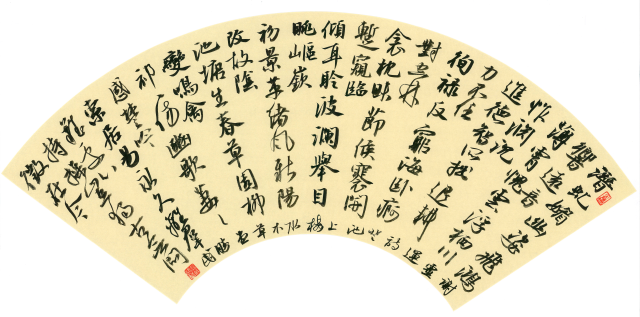 潛虬媚幽姿飛鴻
響遠音
薄霄愧雲浮栖川
怍淵沉
進德智所拙退耕
力不任
徇祿反窮海卧痾
對空林
衾枕昧節候褰開
暫窺臨
傾耳聆波瀾舉目
眺嶇嶔
初景革緒風新陽
改故陰
池塘生春草園柳
變鳴禽
祁〻傷豳歌萋〻
感楚吟
索居易永久離羣
難處心
持操豈獨古無悶
徵在今
謝靈運詩登池上